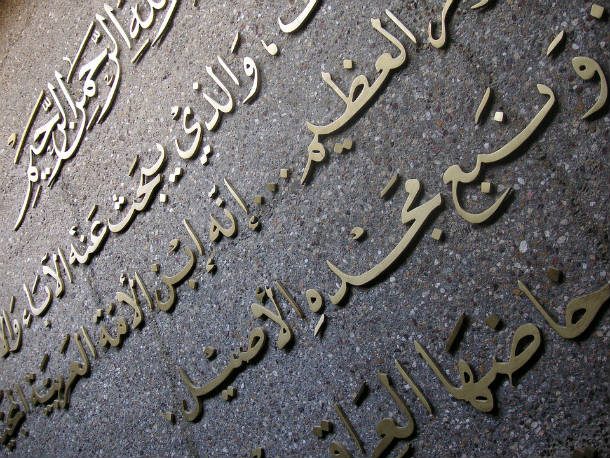 الله الرَّحْمنِ الرَّحِيْمِ
، وَالذِيْ يبحَث عَنْهُ الآبَاء
العَظِيْم ... إنَّهُ ابْنُ الأمَّة العَرَبيَّة
وَنَبْع مَجْدِهِ الأصِيْل.
خاضَهَا العِراق